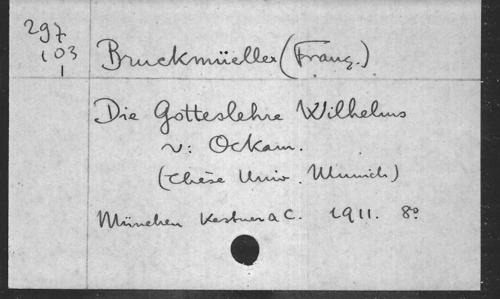 297
103
1
Bruckmüeller (Franz.)
Die Gotteslehre Wilhelms
v: Ockam.
(thèse Univ. Munich)
München Kastner a C. 1911. 8º